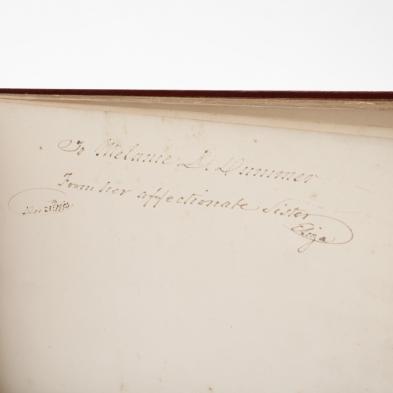 To Melanie D. Dummer
From her affectionate Sister
Eliza